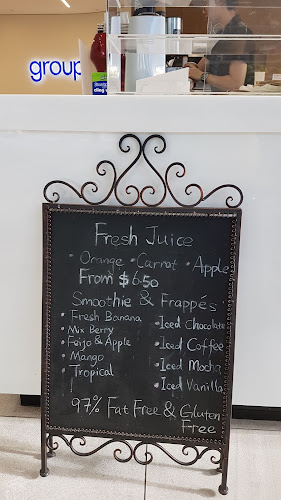 group
Fresh Juice
• Orange • Carrot • Apple
From $6.50
Smoothie & Frappés
• Fresh Banana
• Mix Berry
• Feijo & Apple
• Mango
• Tropical
• Iced Chocolate
• Iced Coffee
• Iced Mocha
• Iced Vanilla
97% Fat Free & Gluten
Free